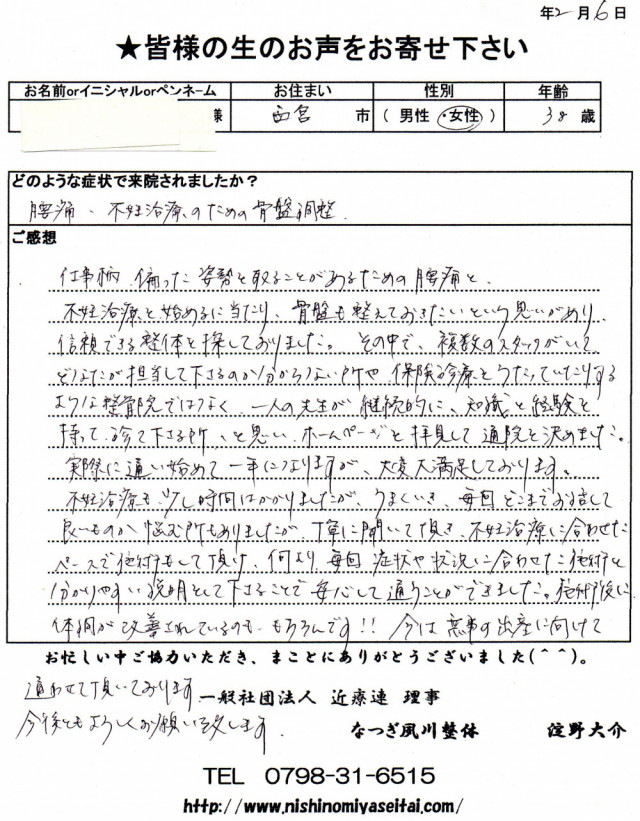 年2月6日
★皆様の生のお声をお寄せ下さい
お名前orイニシャルorペンネーム お住まい 性別 年齢
様 西宮 市 ( 男性 ・ 女性 ) 38 歳
どのような症状で来院されましたか？
腰痛、不妊治療のための骨盤調整
ご感想
仕事柄、偏った姿勢を取ることがあるための腰痛と、
不妊治療を始めるに当たり、骨盤も整えておきたいという思いがあり、
信頼できる整体を探しておりました。その中で、複数のスタッフがいて
どなたが担当して下さるのか分からない所や、保険診療をうたっていたりする
ような整骨院ではなく、一人の先生が継続的に、知識と経験を
持って診て下さる所、と思い、ホームページを拝見して通院を決めました。
実際に通い始めて一年になりますが、大変大満足しております。
不妊治療も少し時間はかかりましたが、うまくいき、毎回どこまでお話して
良いものか悩む所もありましたが、丁寧に聞いて頂き、不妊治療に合わせた
ペースで施術もして頂け、何より毎回症状や状況に合わせた施術と
分かりやすい説明をして下さることで安心して通うことができました。施術後に
体調が改善されているのも、もちろんです!! 今は無事の出産に向けて
お忙しい中ご協力いただき、まことにありがとうございました(＾＾)。
通わせて頂いております。
一般社団法人 近療連 理事
今後ともよろしくお願い致します。
なつぎ夙川整体 淀野大介
TEL 0798-31-6515
http://www.nishinomiyaseitai.com/